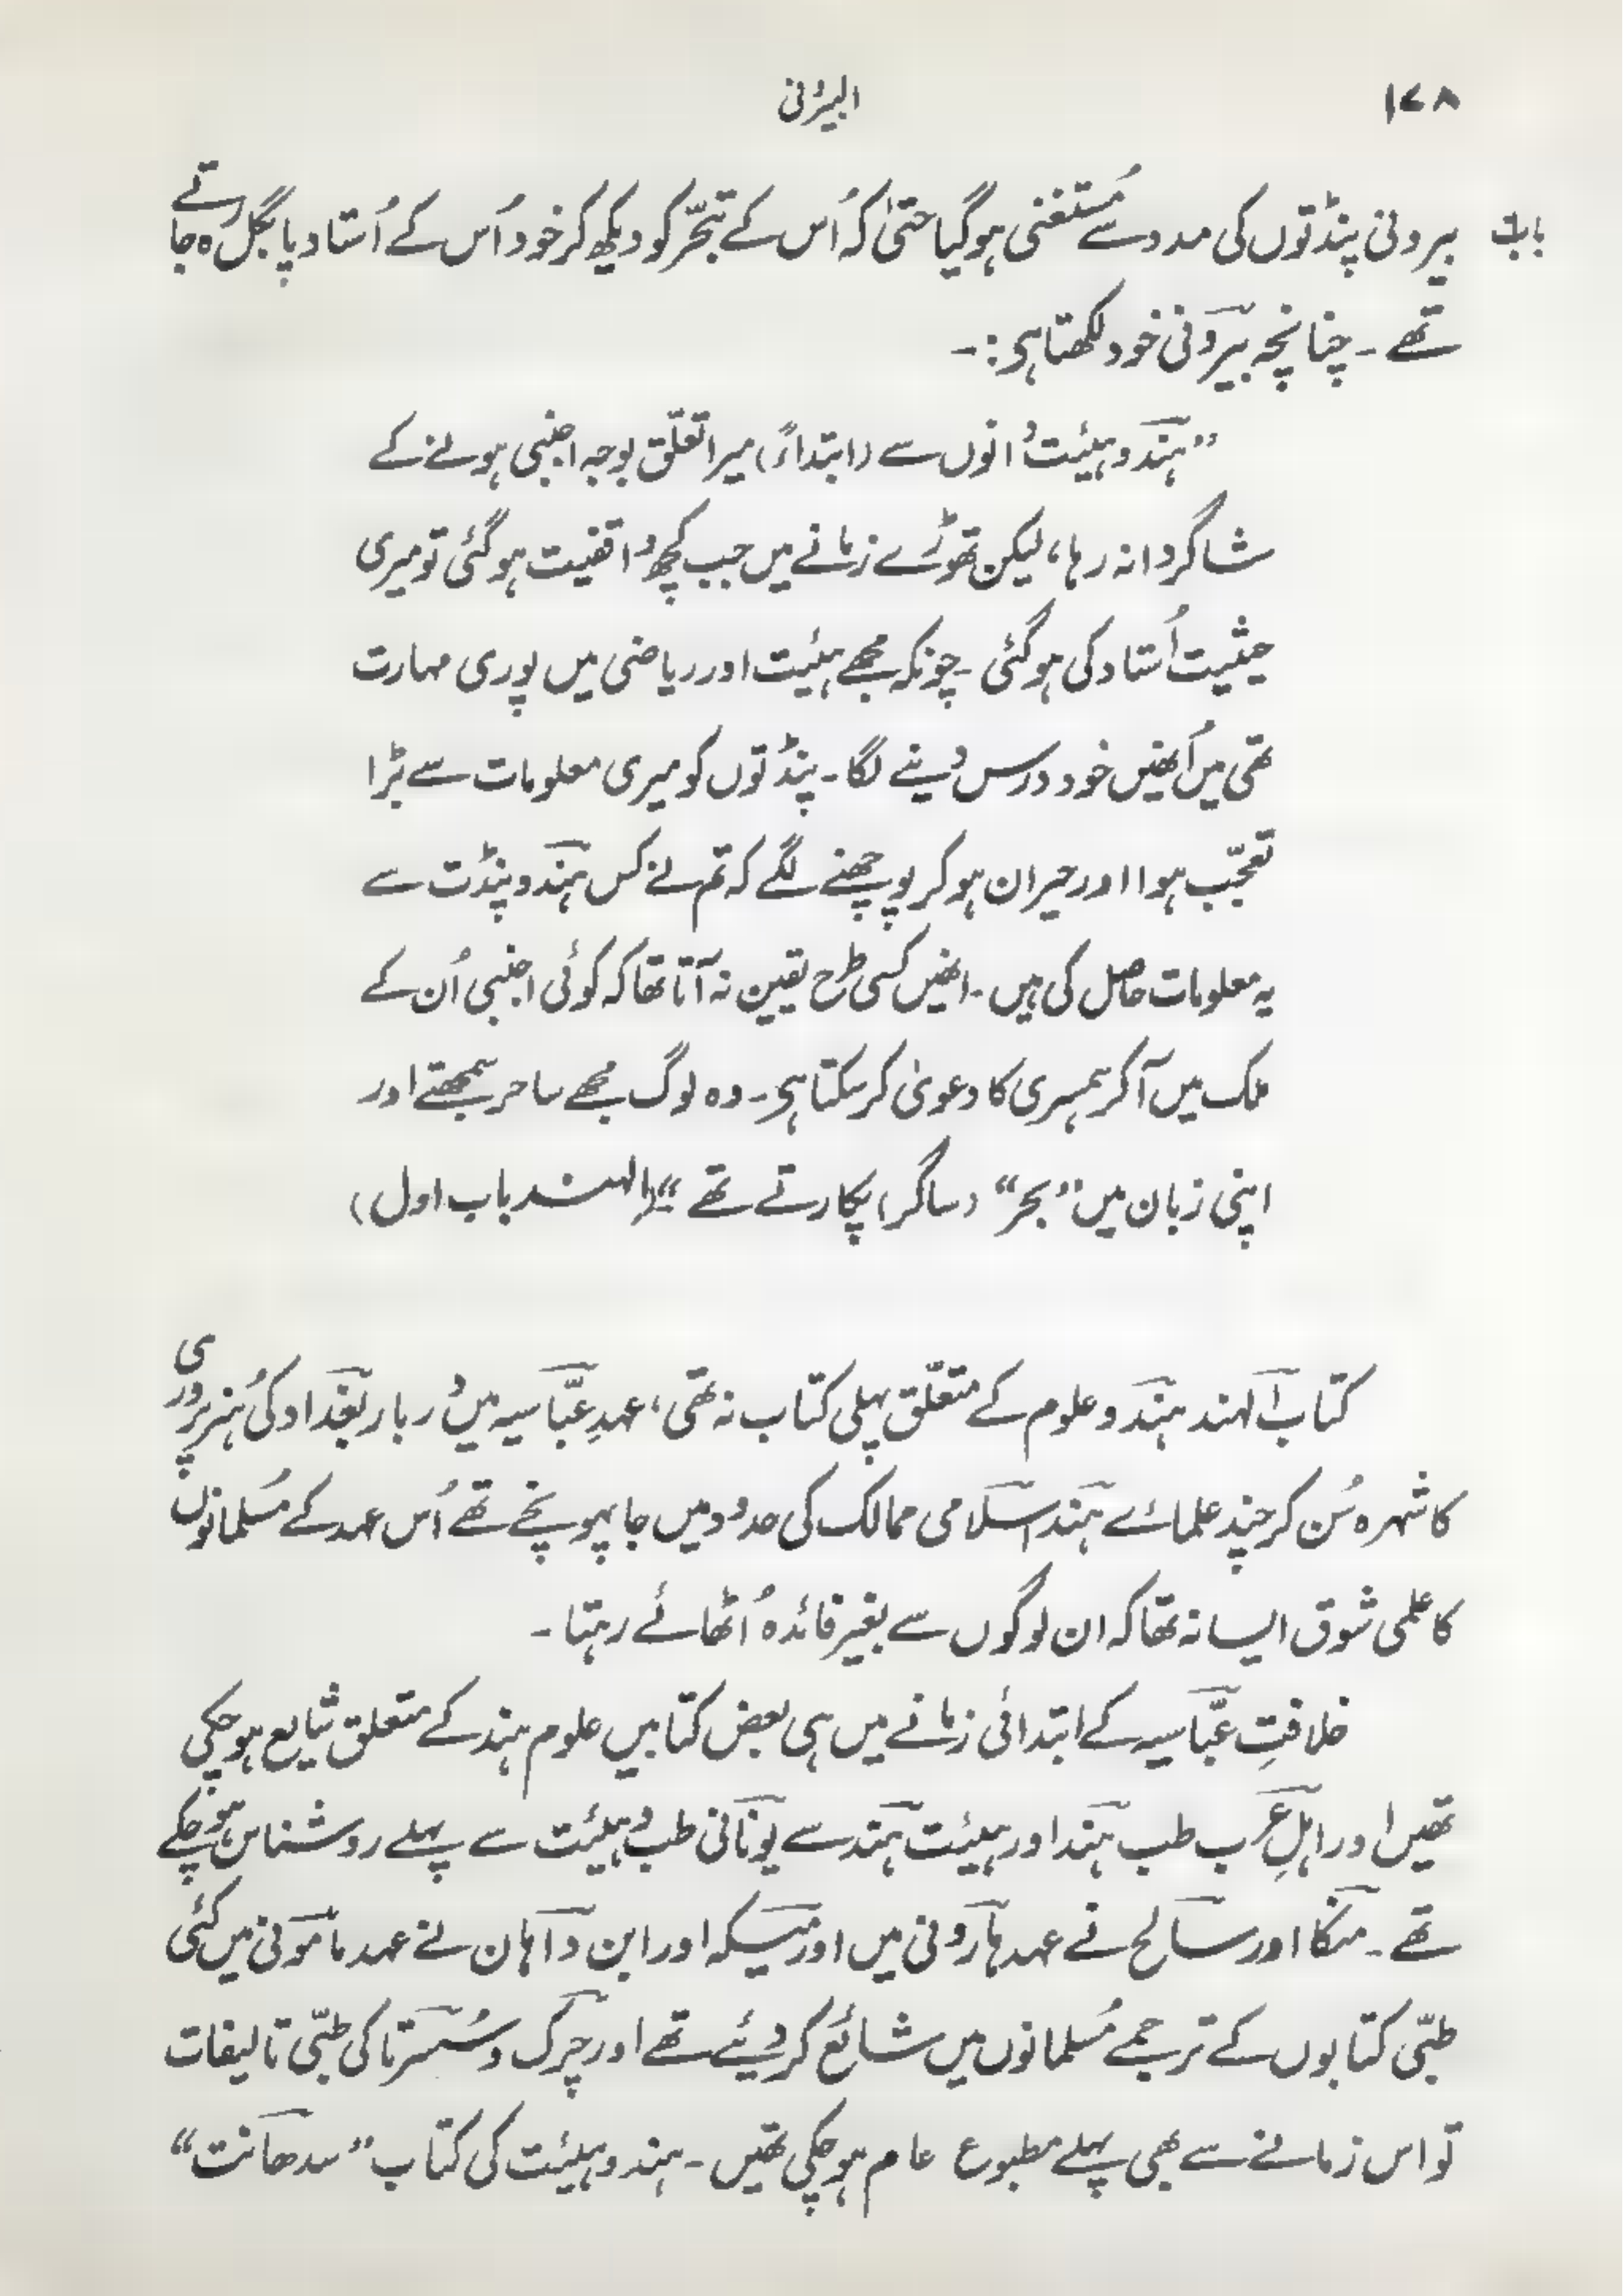 ۱۷۸
البیرونی
باب
بیرونی پنڈتوں کی مدد سے مُستغنی ہوگیا حتیٰ کہ اُس کے تبحّر کو دیکھ کر خود اُس کے اُستاد پا بگل رہ جاتے
تھے ۔ چنانچہ بیرونی خود لکھتا ہی :۔
”ہندو ہیئت دانوں سے (ابتداءً) میرا تعلّق بوجہ اجنبی ہونے کے
شاگردانہ رہا، لیکن تھوڑے زمانے میں جب کچھ واقفیت ہوگئی تو میری
حیثیت اُستاد کی ہوگئی ۔ چونکہ مجھے ہیئت اور ریاضی میں پوری مہارت
تھی میں اُنھیں خود درس دینے لگا ۔ پنڈتوں کو میری معلومات سے بڑا
تعجّب ہوا اور حیران ہوکر پوچھنے لگے کہ تم نے کس ہندو پنڈت سے
یہ معلومات حاصل کی ہیں ۔ انھیں کسی طرح یقین نہ آتا تھا کہ کوئی اجنبی اُن کے
ملک میں آکر ہمسری کا دعویٰ کرسکتا ہی ۔ وہ لوگ مجھے ساحر سمجھتے اور
اپنی زبان میں ”بحر“ (ساگر) پکارتے تھے “ (الہند باب اول)
کتاب الہند ہندو علوم کے متعلّق پہلی کتاب نہ تھی، عہدِ عبّاسیہ میں دربار بغداد کی ہُنر پروری
کا شہرہ سُن کر چند علمائے ہند اسلامی ممالک کی حدود میں جا پہونچے تھے اُس عہد کے مُسلمانوں
کا علمی شوق ایسا نہ تھا کہ ان لوگوں سے بغیر فائدہ اُٹھائے رہتا ۔
خلافتِ عبّاسیہ کے ابتدائی زمانے میں ہی بعض کتابیں علوم ہند کے متعلق شایع ہوچکی
تھیں اور اہلِ عرب طب ہند اور ہیئت ہند سے یونانی طب و ہیئت سے پہلے روشناس ہوچکے
تھے ۔ منکا اور سالح نے عہد ہارونی میں اور میسکہ اور ابن داہان نے عہد مامونی میں کئی
طبّی کتابوں کے ترجمے مُسلمانوں میں شائع کردیئے تھے اور چرک و سُسرتا کی طبّی تالیفات
تو اس زمانے سے بھی پہلے مطبوع عام ہوچکی تھیں ۔ ہندو ہیئت کی کتاب ”سدھانت“